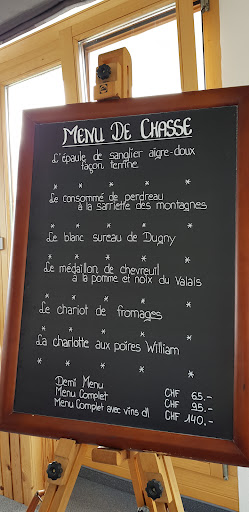 MENU DE CHASSE
L'épaule de sanglier aigre-doux
façon terrine
* * * * *
Le consommé de perdreau
à la sarriette des montagnes
* * * * *
Le blanc sureau de Dugny
* * * * *
Le médaillon de chevreuil
à la pomme et noix du Valais
* * * * *
Le chariot de fromages
* * * * *
La charlotte aux poires William
* * * * *
Demi Menu CHF 65.-
Menu Complet CHF 95.-
Menu Complet avec vins CHF 140.-